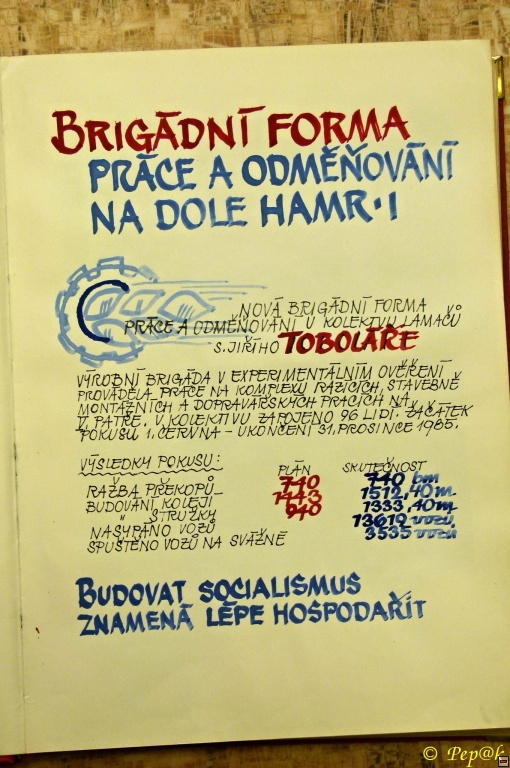 BRIGÁDNÍ FORMA
PRÁCE A ODMĚŇOVÁNÍ
NA DOLE HAMR · I
NOVÁ BRIGÁDNÍ FORMA
PRÁCE A ODMĚŇOVÁNÍ U KOLEKTVU LAMAČŮ
S. JIŘÍHO TOBOLÁŘE
VÝROBNÍ BRIGÁDA V EXPERIMENTÁLNÍM OVĚŘENÍ
PROVÁDĚLA PRÁCE NA KOMPLEXU RAZICÍCH, STAVEBNĚ
MONTÁŽNÍCH A DOPRAVÁŘSKÝCH PRACÍCH NA
V. PATŘE. V KOLEKTIVU ZAPOJENO 96 LIDÍ. ZAČÁTEK
POKUSU 1. ČERVNA - UKONČENÍ 31. PROSINCE 1985.
VÝSLEDKY POKUSU: PLÁN SKUTEČNOST
RAŽBA PŘEKOPŮ 740 740 bm
BUDOVÁNÍ KOLEJÍ 1443 1512,40m
" STRUŽKY 940 1333,40m
NASYPÁNO VOZŮ 13619 vozů
SPUŠTĚNO VOZŮ NA SVÁŽNĚ 3535 vozů
BUDOVAT SOCIALISMUS
ZNAMENÁ LÉPE HOSPODAŘIT
© Pep@k